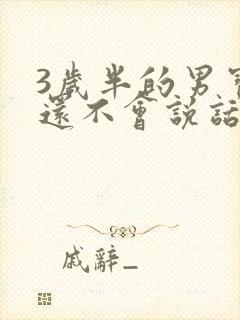 3歲半的男寶
還不會說話
戚辭_